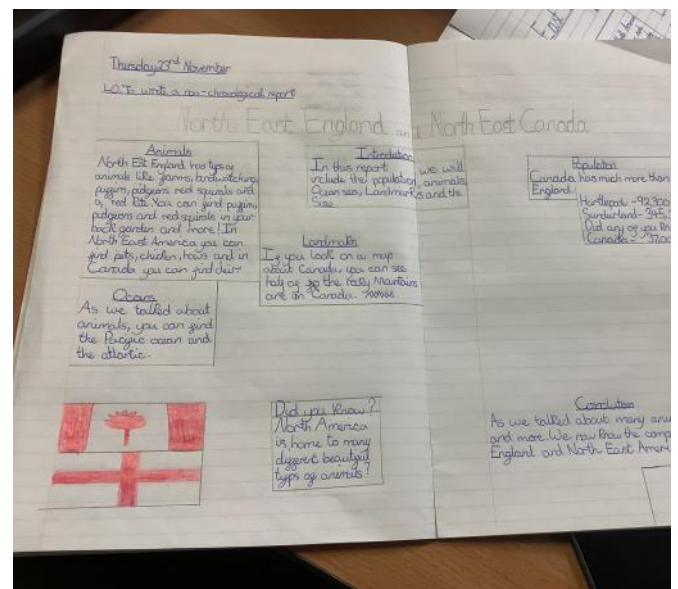 Thursday 23rd November
L.O. To write a non-chronological report
North East England and North East Canada
Animals
North Est England has typs of
animals like farms, birdwatching,
puffin, pidgeons red squirals and
a red kite. You can find puffins,
pidgeons and red squirals in your
back garden and more! In
North East America you can
find pets, chicken, hows and in
Canada you can find deer
Introduction
In this report we will
include the population, animals,
Ocean sea, Landmarks and the
Size
Landmarks
If you look on a map
about Canada, you can see
half of the Rocky Mountains
are in Canada.
Oceans
As we talked about
animals, you can find
the Pacific ocean and
the atlantic.
Did you know?
North America
is home to many
different beautiful
typs of animals?
Population
Canada has much more than
England.
Hartlepool - 92,300
Sunderland - 345,
Did any of you
Canada -
Conclution
As we talked about many
and more. We now know the
England and North East
East